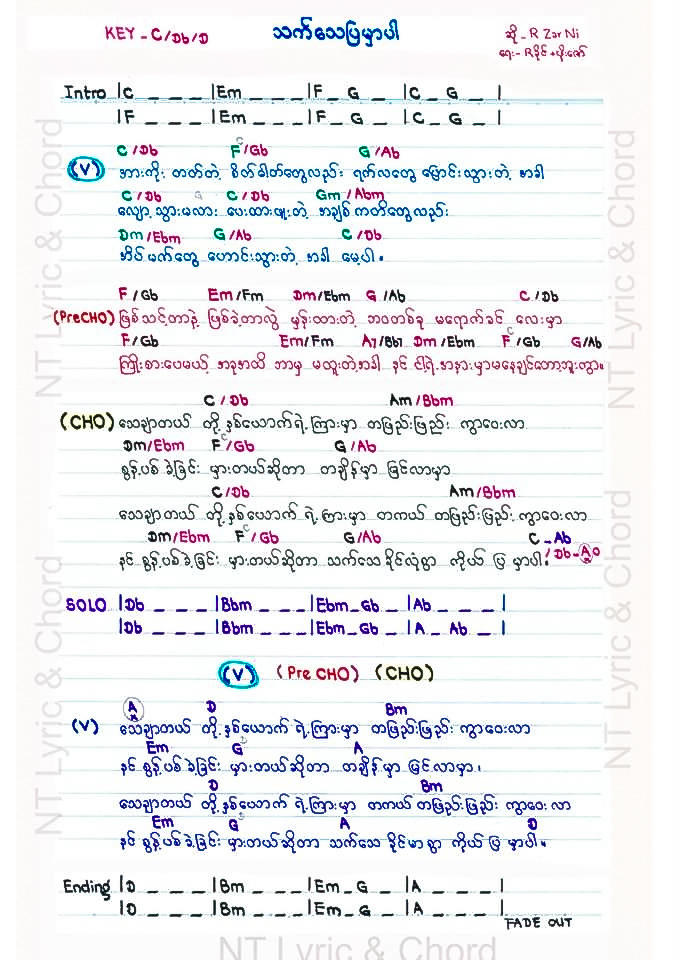 KEY - C/Db/D သက်သေပြမှာပါ ဆို - R Zar Ni
ရေး - R နိုင် + ဖိုးဇော်
Intro |C _ _ _ |Em _ _ _ |F _ G _ |C _ G _ |
|F _ _ _ |Em _ _ _ |F _ G _ |C _ G _ |
C/Db F/Gb C G/Ab
(V) အားကိုး တတ်တဲ့ စိတ်ဓါတ်တွေလည်း ရက်လတွေ ပြောင်းသွားတဲ့ အခါ
C/Db G C/Db Gm/Abm
လျော့သွားမလား ပေးထားဖူးတဲ့ အချစ်ကတိတွေလည်း
Dm/Ebm G/Ab C/Db
အိပ်မက်တွေ ဟောင်းသွားတဲ့ အခါ မေ့ပါ။
F/Gb Em/Fm Dm/Ebm G/Ab C/Db
(PreCHO) ဖြစ်သင့်တာနဲ့ ဖြစ်ခဲ့တာလွဲ မှန်းထားတဲ့ ဘဝတစ်ခု မရောက်ခင် လေးမှာ
F/Gb Em/Fm A7/Bb7 Dm/Ebm F/Gb C G/Ab
ကြိုးစားပေမယ့် အခုအထိ ဘာမှ မထူးတဲ့အခါ နင် ငါ့ရဲ့အနားမှာမနေချင်တော့ဘူးကွာ။
C/Db Am/Bbm
(CHO) သေချာတယ် တို့နှစ်ယောက်ရဲ့ကြားမှာ တဖြည်းဖြည်း ကွာဝေးလာ
Dm/Ebm F/Gb C G/Ab
စွန့်ပစ်ခဲ့ခြင်း မှားတယ်ဆိုတာ တချိန်မှာ မြင်လာမှာ
C/Db Am/Bbm
သေချာတယ် တို့နှစ်ယောက် ရဲ့ကြားမှာ တကယ် တဖြည်းဖြည်း ကွာဝေးလာ
Dm/Ebm F/Gb C G/Ab C - Ab
နင် စွန့်ပစ်ခဲ့ခြင်း မှားတယ်ဆိုတာ သက်သေ ခိုင်လုံစွာ ကိုယ် ပြ မှာပါ။ / Db - A
SOLO |Db _ _ _ |Bbm _ _ _ |Ebm _ Gb _ |Ab _ _ _ |
|Db _ _ _ |Bbm _ _ _ |Ebm _ Gb _ |A _ Ab _ |
(V) (Pre CHO) (CHO)
A D Bm
(V) သေချာတယ် တို့နှစ်ယောက် ရဲ့ကြားမှာ တဖြည်းဖြည်း ကွာဝေးလာ
Em G A
နင် စွန့်ပစ်ခဲ့ခြင်း မှားတယ်ဆိုတာ တချိန်မှာ မြင်လာမှာ၊
D Bm
သေချာတယ် တို့နှစ်ယောက် ရဲ့ကြားမှာ တကယ် တဖြည်းဖြည်း ကွာဝေးလာ
Em G A D
နင် စွန့်ပစ်ခဲ့ခြင်း မှားတယ်ဆိုတာ သက်သေ ခိုင်မာစွာ ကိုယ် ပြ မှာပါ။
Ending |D _ _ _ |Bm _ _ _ |Em _ G _ |A _ _ _ |
|D _ _ _ |Bm _ _ _ |Em _ G _ |A _ _ _ |
FADE OUT
NT Lyric & Chord
NT Lyric & Chord
NT Lyric & Chord
NT Lyric & Chord
NT Lyric & Chord